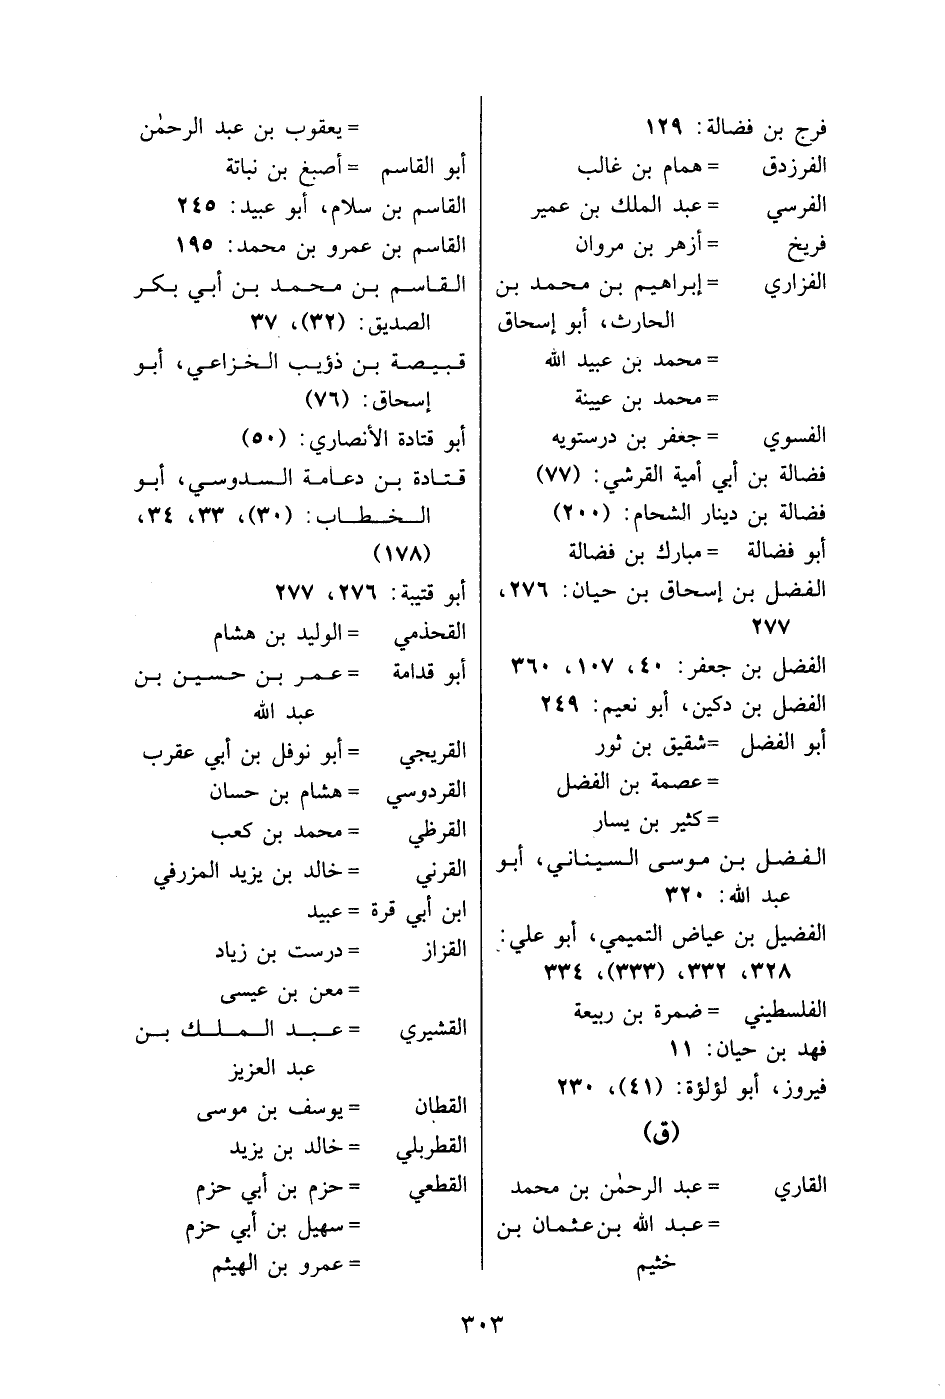 فرج بن فضالة: ١٢٩
الفرزدق = همام بن غالب
الفرسي = عبد الملك بن عمير
فريخ = أزهر بن مروان
الفزاري = إبراهيم بن محمد بن
الحارث، أبو إسحاق
= محمد بن عبيد الله
= محمد بن عيينة
الفسوي = جعفر بن درستويه
فضالة بن أبي أمية القرشي: (٧٧)
فضالة بن دينار الشحام: (٢٠٠)
أبو فضالة = مبارك بن فضالة
الفضل بن إسحاق بن حيان: ٢٧٦،
٢٧٧
الفضل بن جعفر: ٤٠، ١٠٧، ٣٦٠
الفضل بن دكين، أبو نعيم: ٢٤٩
أبو الفضل =شقيق بن ثور
= عصمة بن الفضل
= كثير بن يسار
الفضل بن موسى السيناني، أبو
عبد الله: ٣٢٠
الفضيل بن عياض التميمي، أبو علي:
٣٢٨، ٣٣٢، (٣٣٣)، ٣٣٤
الفلسطيني = ضمرة بن ربيعة
فهد بن حيان: ١١
فيروز، أبو لؤلؤة: (٤١)، ٢٣٠
(ق)
القاري = عبد الرحمٰن بن محمد
= عبد الله بن عثمان بن
خثيم
= يعقوب بن عبد الرحمٰن
أبو القاسم = أصبغ بن نباتة
القاسم بن سلام، أبو عبيد: ٢٤٥
القاسم بن عمرو بن محمد: ١٩٥
القاسم بن محمد بن أبي بكر
الصديق: (٣٢)، ٣٧
قبيصة بن ذؤيب الخزاعي، أبو
إسحاق: (٧٦)
أبو قتادة الأنصاري: (٥٠)
قتادة بن دعامة السدوسي، أبو
الخطاب: (٣٠)، ٣٣، ٣٤،
(١٧٨)
أبو قتيبة: ٢٧٦، ٢٧٧
القحذمي = الوليد بن هشام
أبو قدامة = عمر بن حسين بن
عبد الله
القريجي = أبو نوفل بن أبي عقرب
القردوسي = هشام بن حسان
القرظي = محمد بن كعب
القرني = خالد بن يزيد المزرفي
ابن أبي قرة = عبيد
القزاز = درست بن زياد
= معن بن عيسى
القشيري = عبد الملك بن
عبد العزيز
القطان = يوسف بن موسى
القطربلي = خالد بن يزيد
القطعي = حزم بن أبي حزم
= سهيل بن أبي حزم
= عمرو بن الهيثم
٣٠٣